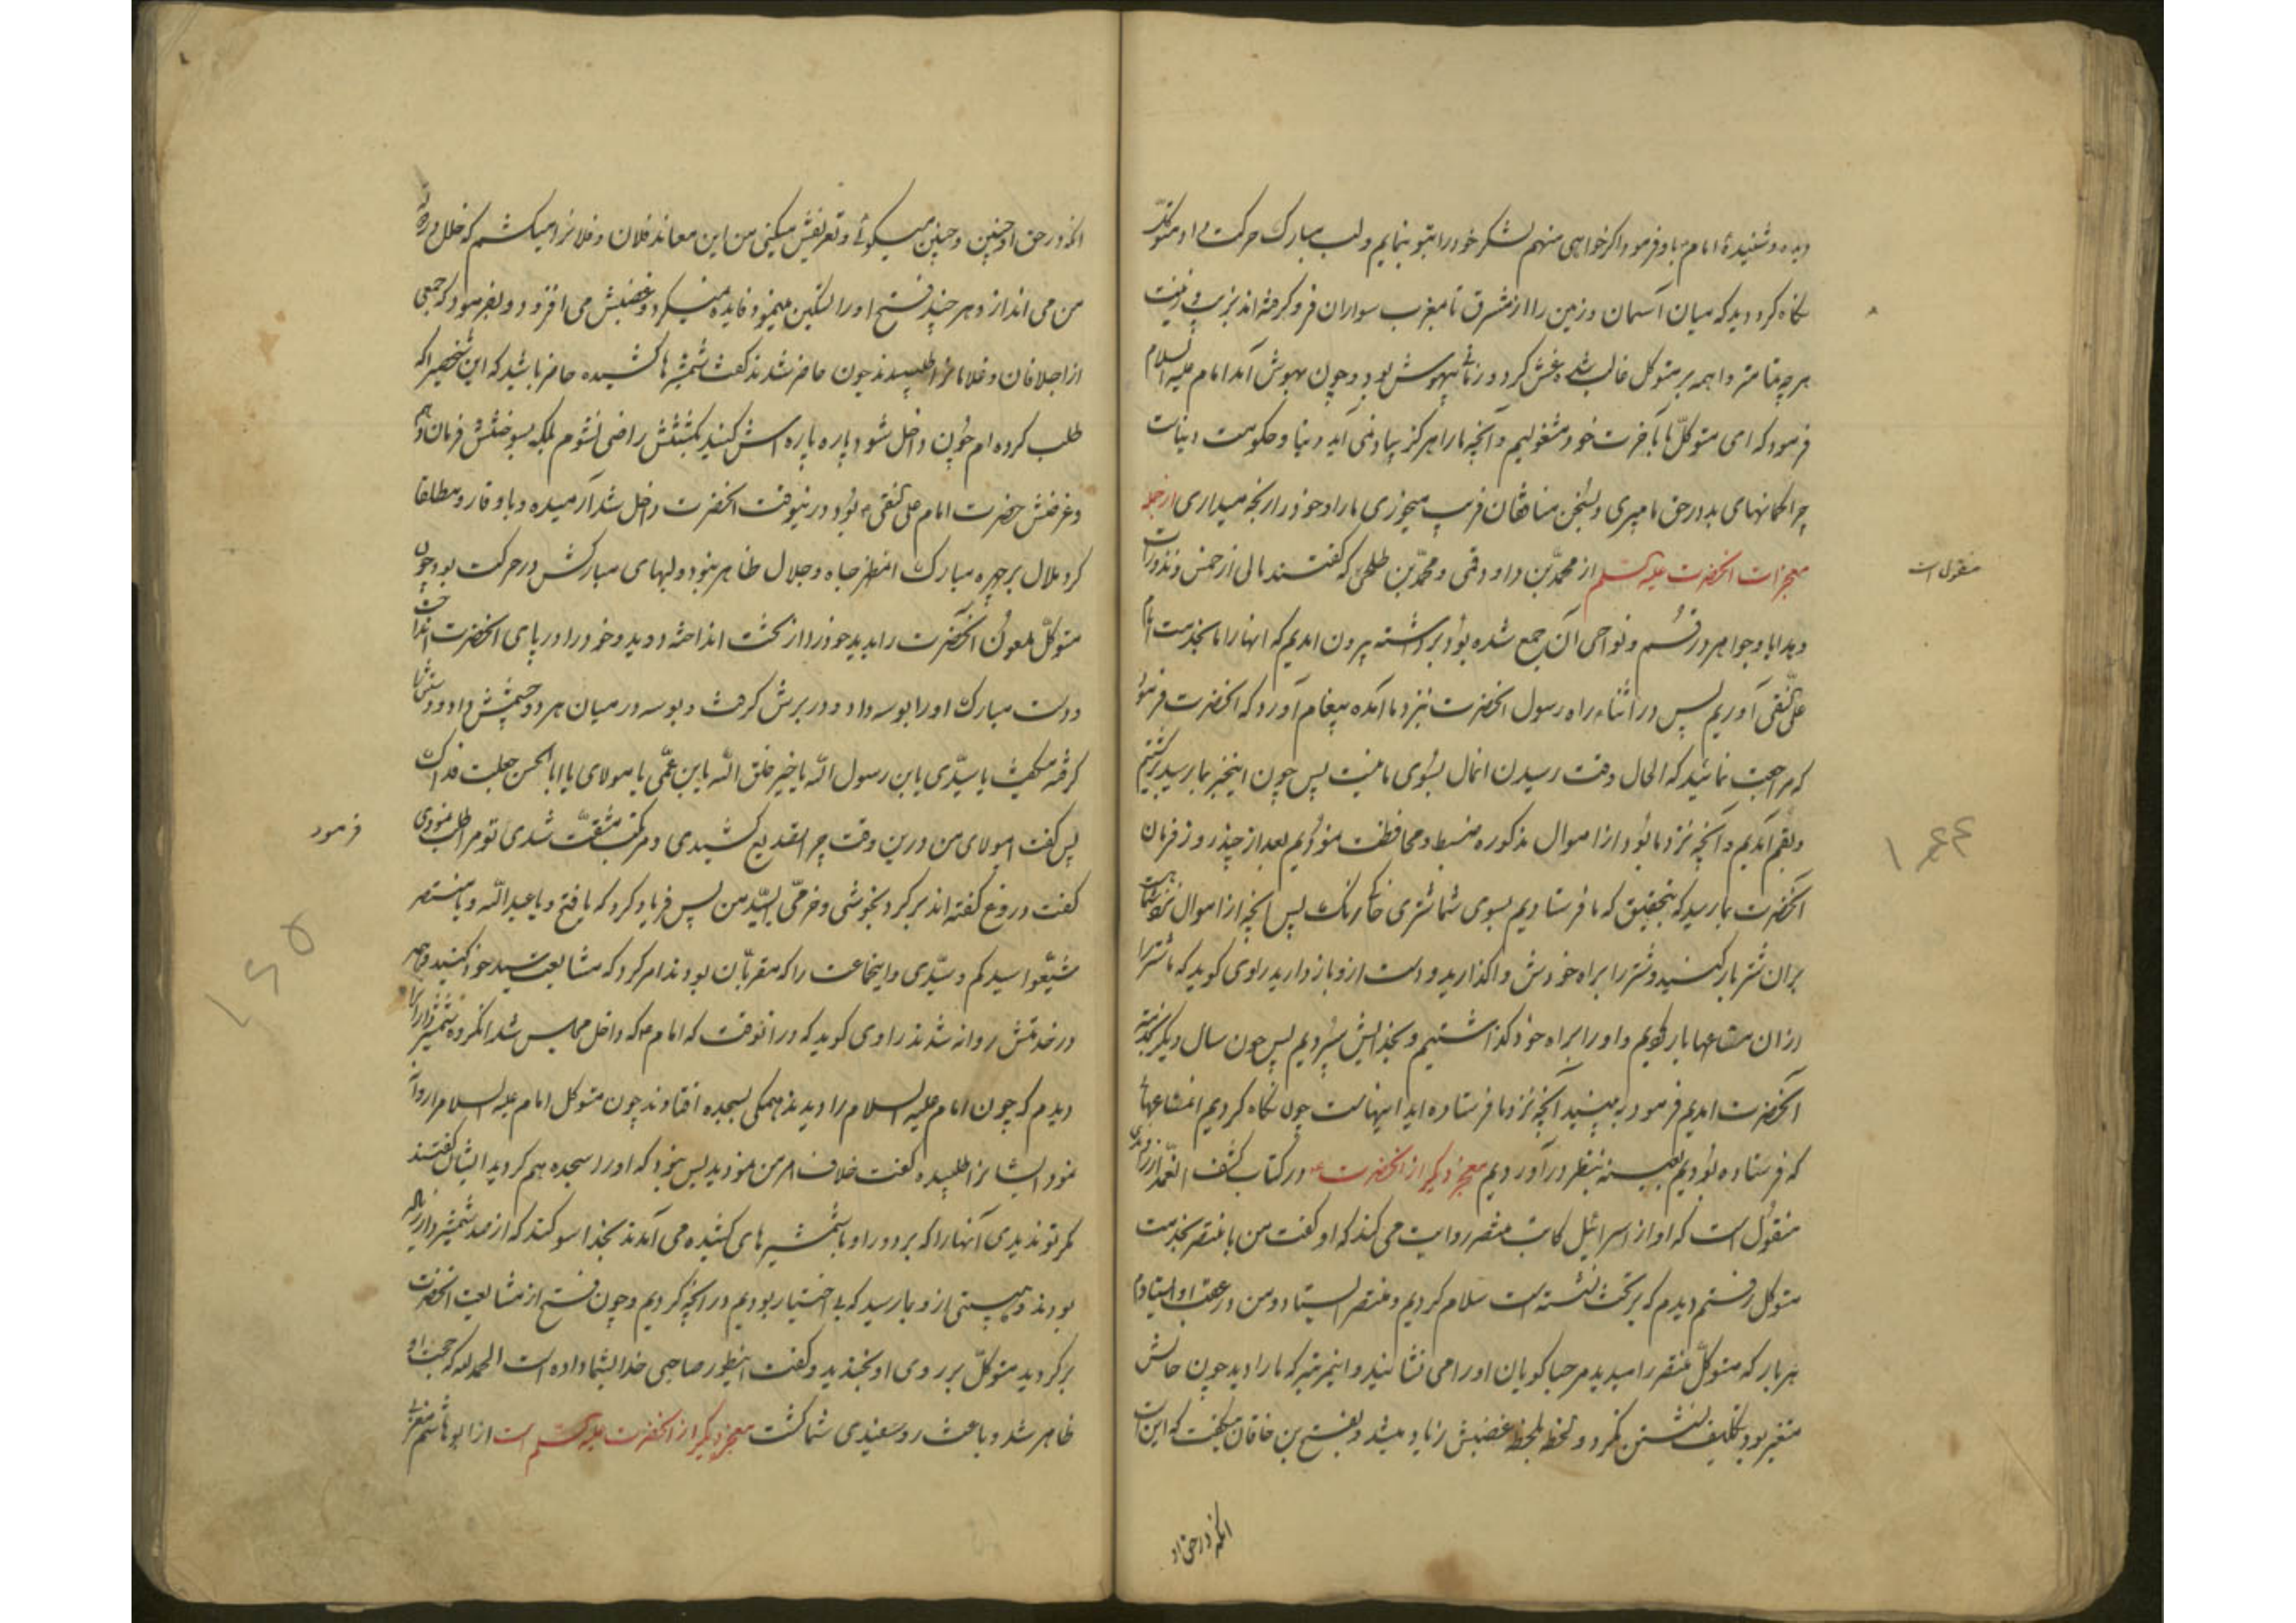 دیده و شنیدهٔ امام باو فرمود اگر خواهی منهم لشکر خود را بتو بنمایم و لب مبارک حرکت داد متوکل
نگاه کرد دید که میان آسمان و زمین را از مشرق تا مغرب سواران فرو گرفته‌اند بزیب و زینت
هر چه تمامتر واهمه بر متوکل غالب شده غش کرد و زمانی بیهوش بود و چون بهوش آمد امام علیه السلام
فرمود که ای متوکل ما بآخرت خود مشغولیم و آنچه ما را هرگز بیاد نمی‌آید دنیا و حکومت دنیاست
چرا گمانهای بد در حق ما میبری و بسخن منافقان فریب میخوری ما را و خود را رنجه میداری از جمله
معجزات آنحضرت علیه السلام از محمد بن داود قمی و محمد بن طلحی که گفتند مالی از خمس و نذورات
منقول است
و هدایا و جواهر در قم و نواحی آن جمع شده بود برداشته بیرون آمدیم که آنها را بخدمت امام
علی النقی آوریم پس در اثناء راه رسول آنحضرت نزد ما آمده پیغام آورد که آنحضرت فرمود
که مراجعت نمائید که الحال وقت رسیدن امال بسوی ما نیست پس چون اینخبر بما رسید برگشتیم
و بقم آمدیم و آنچه نزد ما بود از اموال مذکوره ضبط و محافظت نمودیم بعد از چند روز فرمان
۱۶۴
آنحضرت بما رسید که بتحقیق که ما فرستادیم بسوی شما شتری خاک رنگ پس آنچه از اموال نزد شماست
بر آن شتر بار کنید و شتر را براه خودش واگذارید و دست ازو باز دارید راوی گوید که ما شتر را
از آن متاعها بار کردیم و او را براه خود گذاشتیم و بخدایش سپردیم پس چون سال دیگر بخدمت
آنحضرت آمدیم فرمود به بینید آنچه نزد ما فرستاده‌اید اینهاست چون نگاه کردیم متاعهائی
که فرستاده بودیم بعینه بنظر درآوردیم معجز دیگر از آنحضرت در کتاب کشف الغمه از
منقول است که او از اسرائیل کاتب منتصر روایت می‌کند که او گفت من با منتصر بخدمت
متوکل رفتم دیدم که بر تخت نشسته است سلام کردیم و منتصر ایستاد و من در عقب او ایستادم
هر بار که متوکل منتصر را میدید مرحبا گویان او را می‌نشانید و اینمرتبه که ما را دید چون حالش
متغیر بود تکلیف نشستن نکرد و لحظه بلحظه غضبش زیاد میشد و بفتح بن خاقان میگفت که این است
آنکه در حق او
آنکه در حق او چنین و چنین میگوئی و تعریفش میکنی من این معاند فلان و فلانرا میکشم که خلل در دولت
من می‌اندازد و هر چند فتح او را تسکین مینمود فایده نمیکرد و غضبش می‌افزود و بفرمود که جمعی
از اجلافان و غلامانرا طلبیدند چون حاضر شدند گفت شمشیرها کشیده حاضر باشید که این شخصیرا که
طلب کرده‌ام چون داخل شود پاره پاره‌اش کنید بکشتنش راضی نشوم بلکه بسوختنش فرمان دهم
و غرضش حضرت امام علی نقی بود و درینوقت آنحضرت داخل شد آرمیده و با وقار و مطلقا
گرد ملال بر چهره مبارک آنمظهر جاه و جلال ظاهر نبود و لبهای مبارکش در حرکت بود چون
متوکل ملعون آنحضرت را بدید خود را از تخت انداخته دوید و خود را در پای آنحضرت انداخت
و دست مبارک او را بوسه داد و در برش گرفت و بوسه در میان هر دو چشمش داد و دستش را
گرفته میگفت یا سیدی یا بن رسول الله یا خیر خلق الله یا بن عمی یا مولای یا ابا الحسن جعلت فداک
پس گفت ای مولای من درین وقت چرا تصدیع کشیدی و مرتکب مشقت شدی تو مرا طلب نمودی
فرمود
گفت دروغ گفته‌اند برگرد بخوشی و خرمی ای سید من پس فریاد کرد که یا فتح و یا عبد الله و یا منتصر
۱۶۵
شیّعوا سیدکم و سیدی و اینجماعت را که مقربان بودند امر کرد که مشایعت سید خود کنید و همه
در خدمتش روانه شدند راوی گوید که در آنوقت که امام ع که داخل مجلس شد آنگروه شمشیردار را
دیدم که چون امام علیه السلام را دیدند همگی بسجده افتادند چون متوکل امام علیه السلام را روانه
نمود ایشانرا طلبیده گفت خلاف امر من نمودید بس نبود که او را سجده هم کردید ایشان گفتند
مگر تو ندیدی آنها را که بر دور او با شمشیرهای کشیده می‌آمدند بخدا سوگند که از صد شمشیردار زیاده
بودند و هیبتی ازو بما رسید که بی اختیار بودیم در آنچه کردیم و چون فتح از مشایعت آنحضرت
برگردید متوکل بر روی او بخندید و گفت اینطور صاحبی خدا بشما داده است الحمد لله که حجت او
ظاهر شد و باعث روسفیدی شما گشت معجز دیگر از آنحضرت علیه السلام است از ابو هاشم جعفری